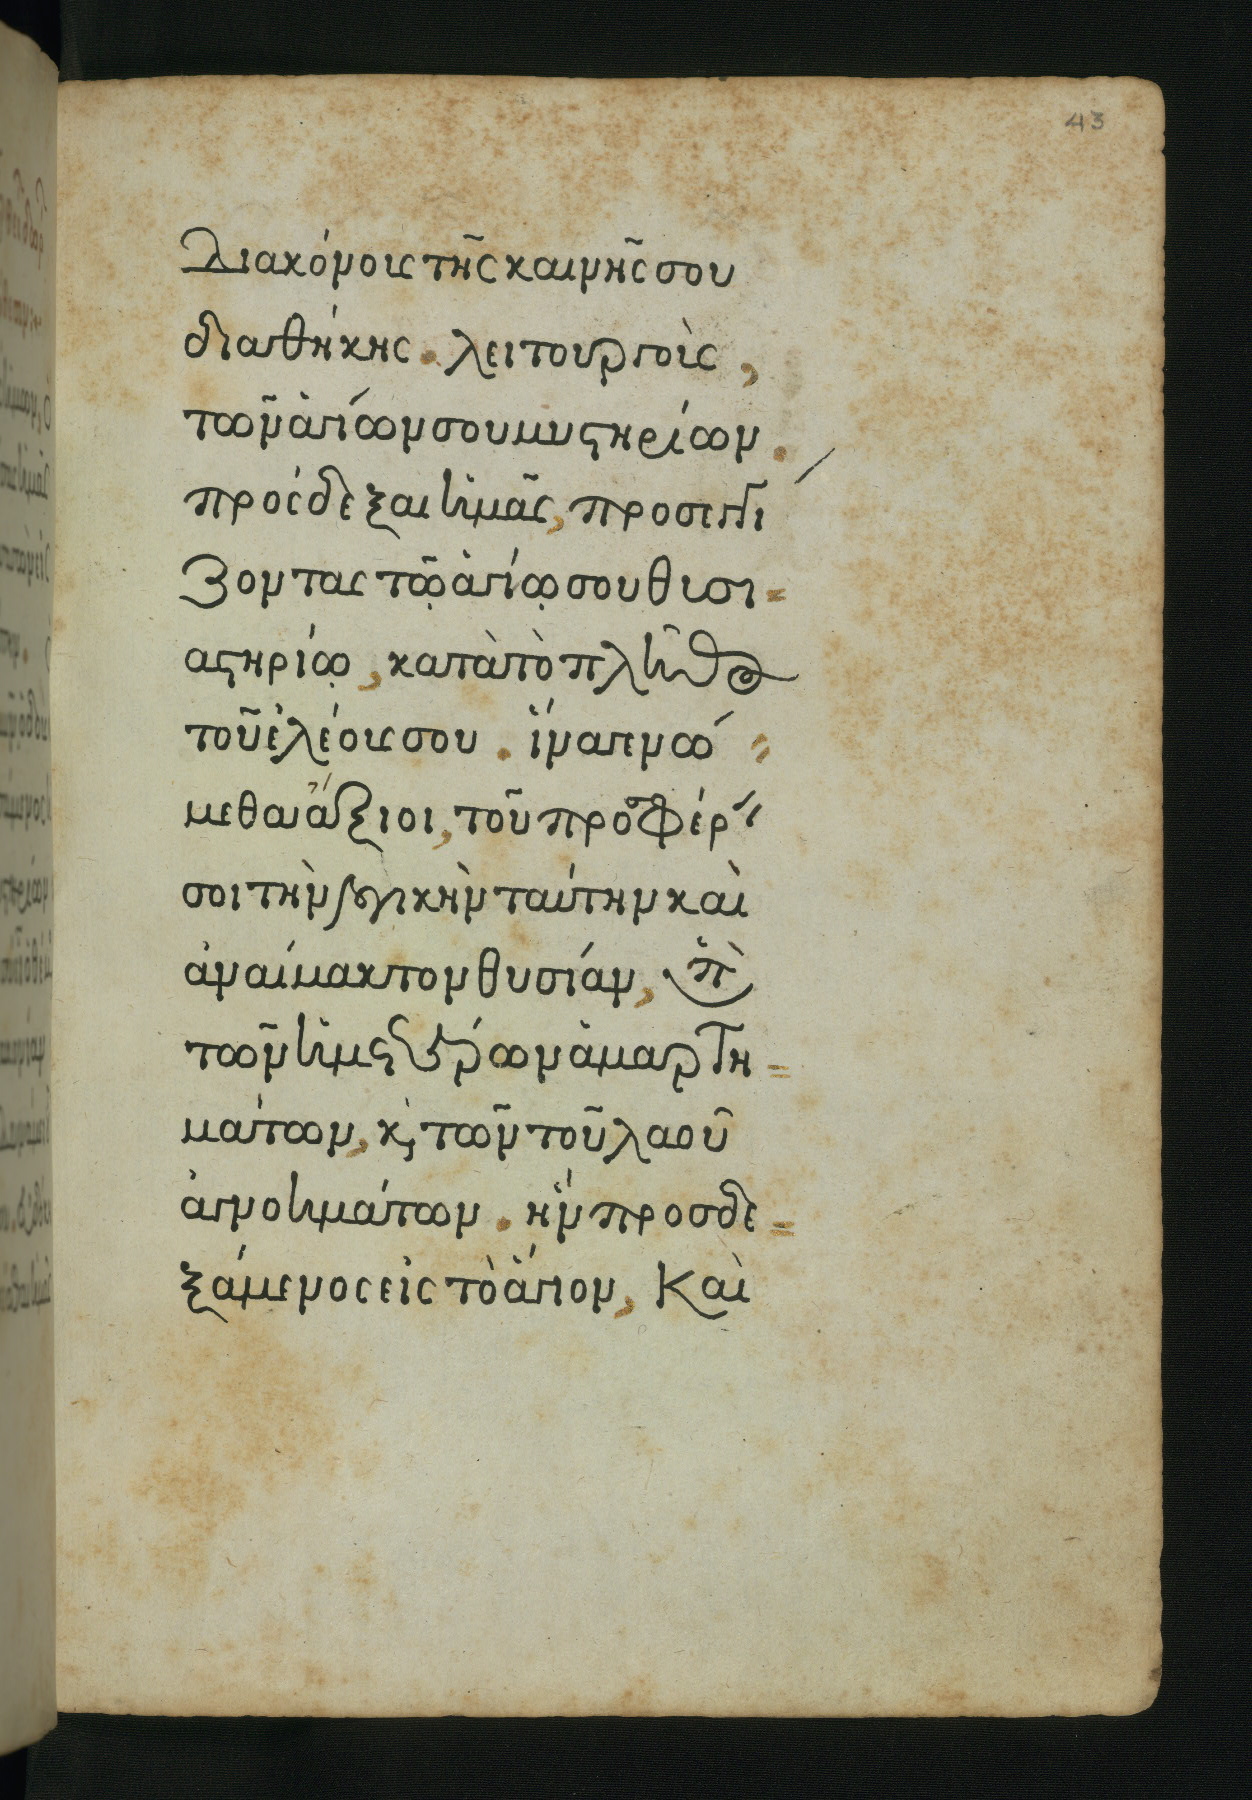 43
Διακόνοις τῆς καινῆς σου
διαθήκης. λειτουργοὶς,
τῶν ἁγίων σου μυστηρίων.
πρόσδεξαι ἡμᾶς, προσεγγί
ζοντας τῷ ἁγίῳ σου θυσι=
αστηρίῳ, κατὰ τὸ πλῆθος
τοῦ ἐλέους σου. ἵνα γενώ=
μεθα ἄξιοι, τοῦ προσφέρειν
σοι τὴν λογικὴν ταύτην καὶ
ἀναίμακτον θυσίαν, ὑπὲρ
τῶν ἡμετέρων ἁμαρτη=
μάτων, κ̀ τῶν τοῦ λαοῦ
ἀγνοημάτων. ἣν προσδε=
ξάμενος εἰς τὸ ἅγιον, Καὶ